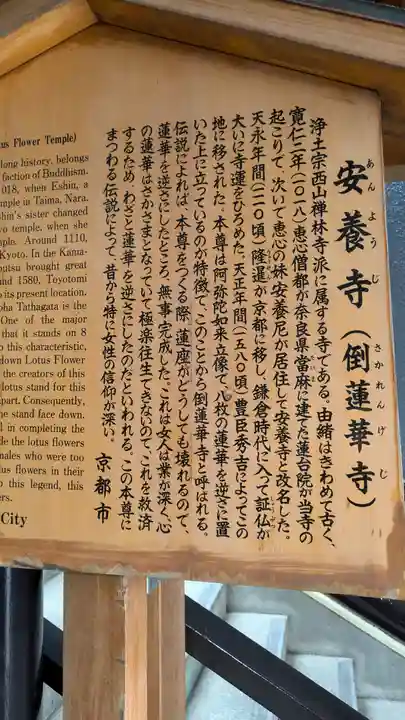 安養寺（倒蓮華寺）
あんようじ
さかれんげじ
浄土宗西山禅林寺派に属する寺である。由緒はきわめて古く、
寛仁二年（一〇一八）恵心僧都が奈良県當麻に建てた蓮台院が当寺の
たいま
起こりで、次いで恵心の妹・安養尼が居住して安養寺と改名した。
天永年間（一一一〇頃）隆暹が京都に移し、鎌倉時代に入って証仏が
大いに寺運をひろめた。天正年間（一五八〇頃）豊臣秀吉によってこの
地に移された。本尊は阿弥陀如来立像で、八枚の蓮華を逆さに置
いた上に立っているのが特徴で、このことから倒蓮華寺と呼ばれる。
伝説によれば、本尊をつくる際、蓮座がどうしても壊れるので、
蓮華を逆さにしたところ、無事完成した。これは女人は業が深く、心
の蓮華はさかさまとなっていて極楽往生できないので、これを救済
するため、わざと蓮華を逆さにしたのだといわれる。この本尊に
まつわる伝説によって、昔から特に女性の信仰が深い。
京都市
tus Flower Temple)
long history, belongs
faction of Buddhism.
018, when Eshin, a
mple in Taima, Nara.
shin's sister changed
yo temple, when she
mple. Around 1110,
Kyoto. In the Kama-
utsu brought great
und 1580, Toyotomi
o its present location.
bha Tathagata is the
One of the major
that it stands on 8
o this characteristic,
down Lotus Flower
the creators of this
lotus stand for this
part. Consequently,
the stand face down.
l in completing the
de the lotus flowers
males who were too
us flowers in their
o this legend, this
ers.
City